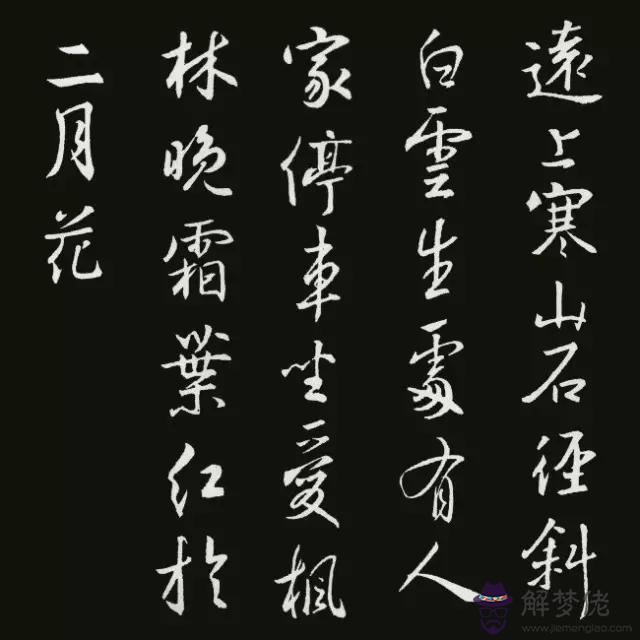 遠上寒山石徑斜
白雲生處有人
家停車坐愛楓
林晚霜葉紅於
二月花
解梦佬
www.jiemenglao.com